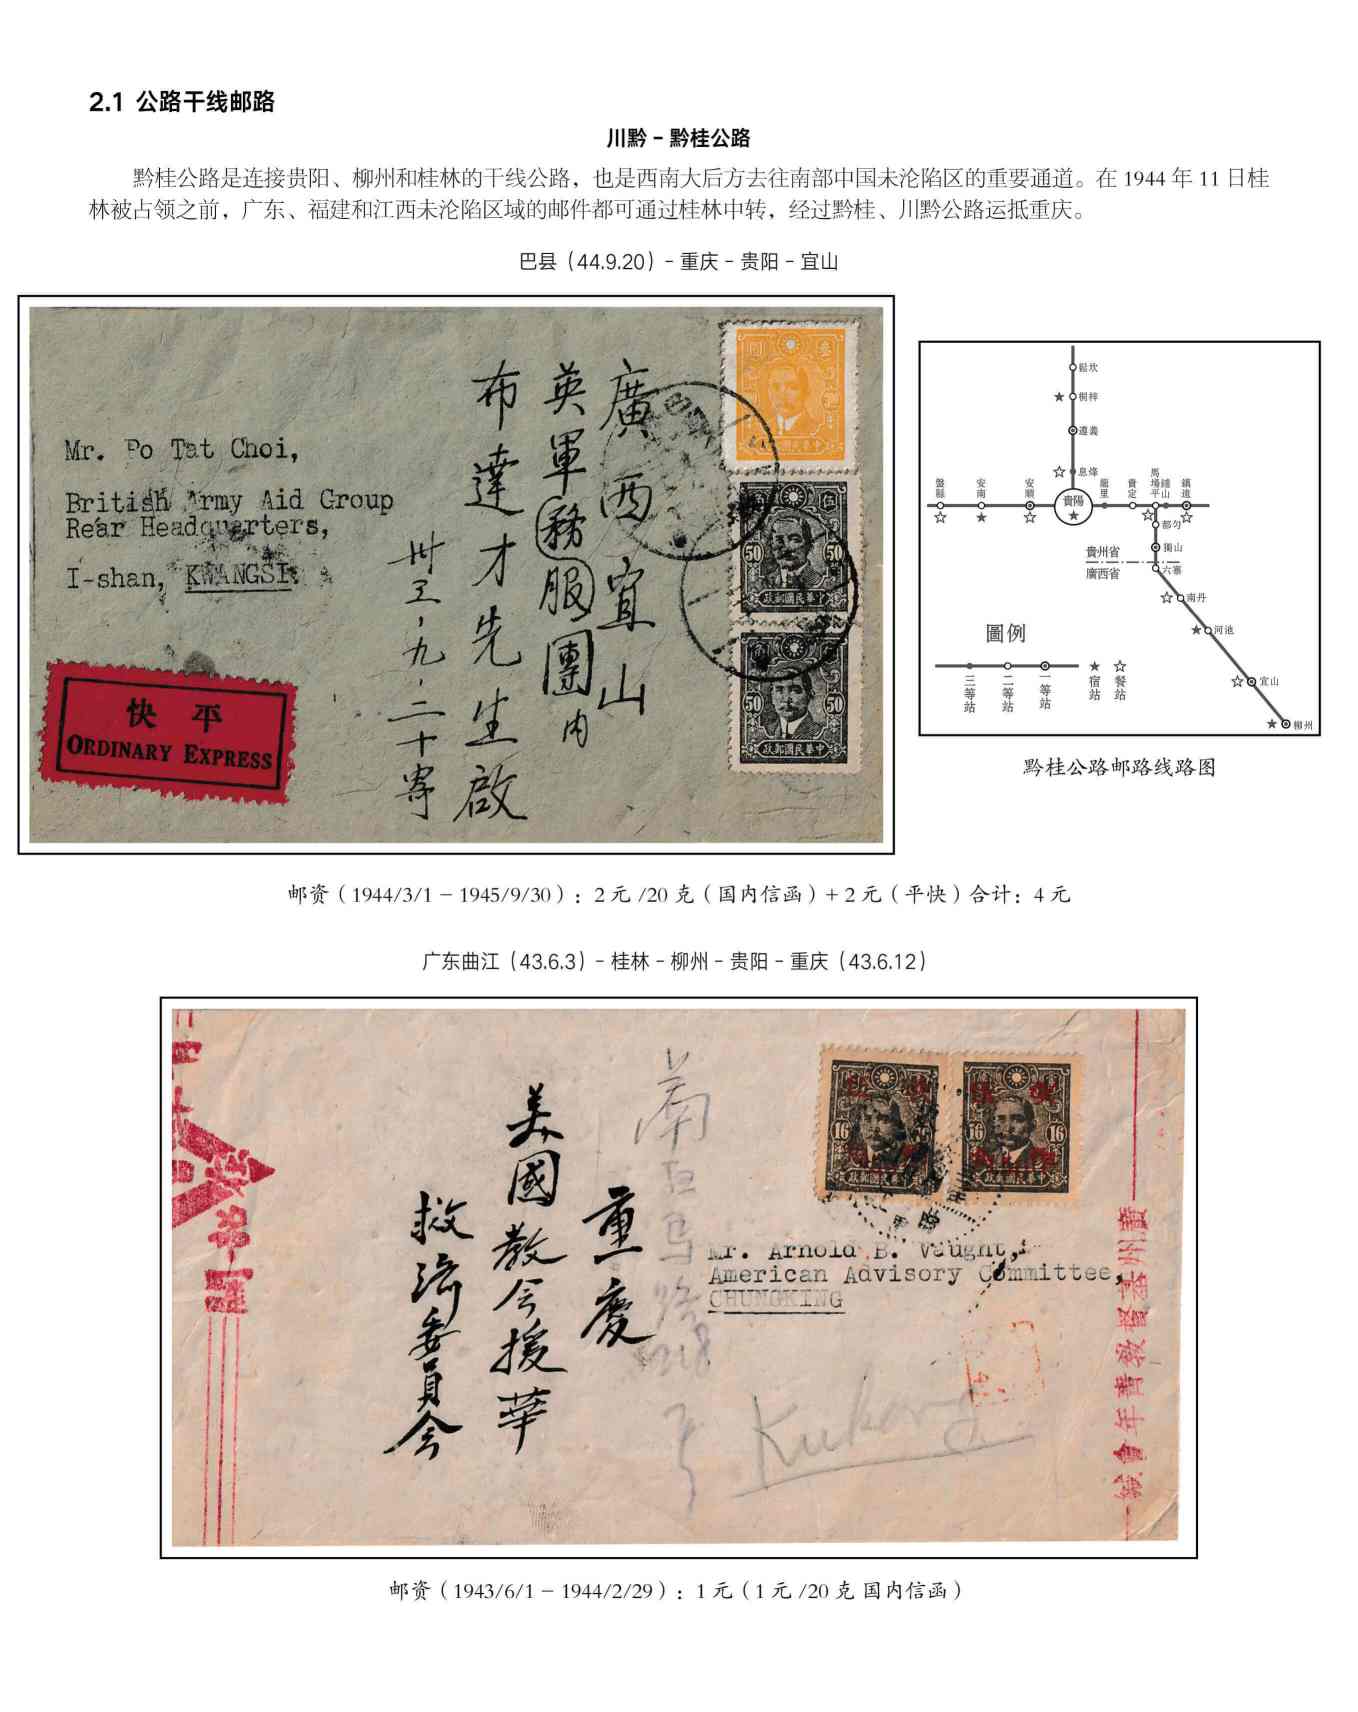 2.1 公路干线邮路
川黔 – 黔桂公路
黔桂公路是连接贵阳、柳州和桂林的干线公路，也是西南大后方去往南部中国未沦陷区的重要通道。在 1944 年 11 日桂
林被占领之前，广东、福建和江西未沦陷区域的邮件都可通过桂林中转，经过黔桂、川黔公路运抵重庆。
巴县（44.9.20）– 重庆 – 贵阳 – 宜山
廣西宜山
英軍務服團内
布達才先生啟
卅三，九，二十寄
Mr. Po Tat Choi,
British Army Aid Group
Rear Headquarters,
I-shan, KWANGSI.
快平
ORDINARY EXPRESS
50 50
政郵國民華中
50 50
政郵國民華中
鬆坎
桐梓
遵義
息烽
盤縣
安南
安順
貴陽
龍里
貴定
馬場平
鑪山
鎮遠
都勻
獨山
貴州省
廣西省
六寨
南丹
河池
宜山
柳州
圖例
三等站
二等站
一等站
宿站
餐站
黔桂公路邮路线路图
邮资（1944/3/1 – 1945/9/30）：2 元 /20 克（国内信函）+ 2 元（平快）合计：4 元
广东曲江（43.6.3）– 桂林 – 柳州 – 贵阳 – 重庆（43.6.12）
重慶
美國教会援華
救济委員会
16
政郵國民華中
16 16
政郵國民華中
Mr. Arnold B. Vaught,
American Advisory Committee,
CHUNGKING
Kukong
廣州基督教青年會緘
邮资（1943/6/1 – 1944/2/29）：1 元（1 元 /20 克 国内信函）